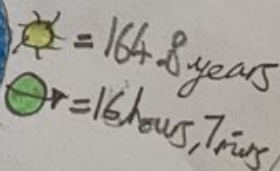 = 164.8 years
= 16 hours, 7 mins,